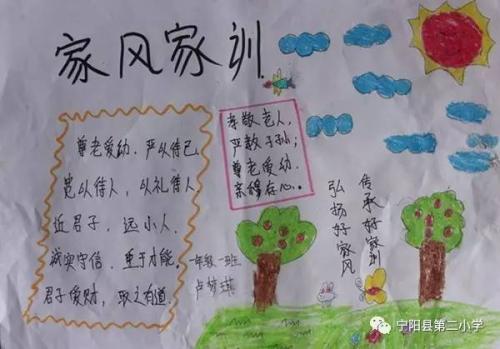 家风家训
尊老爱幼、严以待己
宽以待人，以礼待人
近君子，远小人。
诚实守信、重于才能。
君子爱财，取之有道。
孝敬老人，
严教子孙；
尊老爱幼，
亲穆存心。
传承好家训
弘扬好家风
一年级一班
宁阳县第二小学